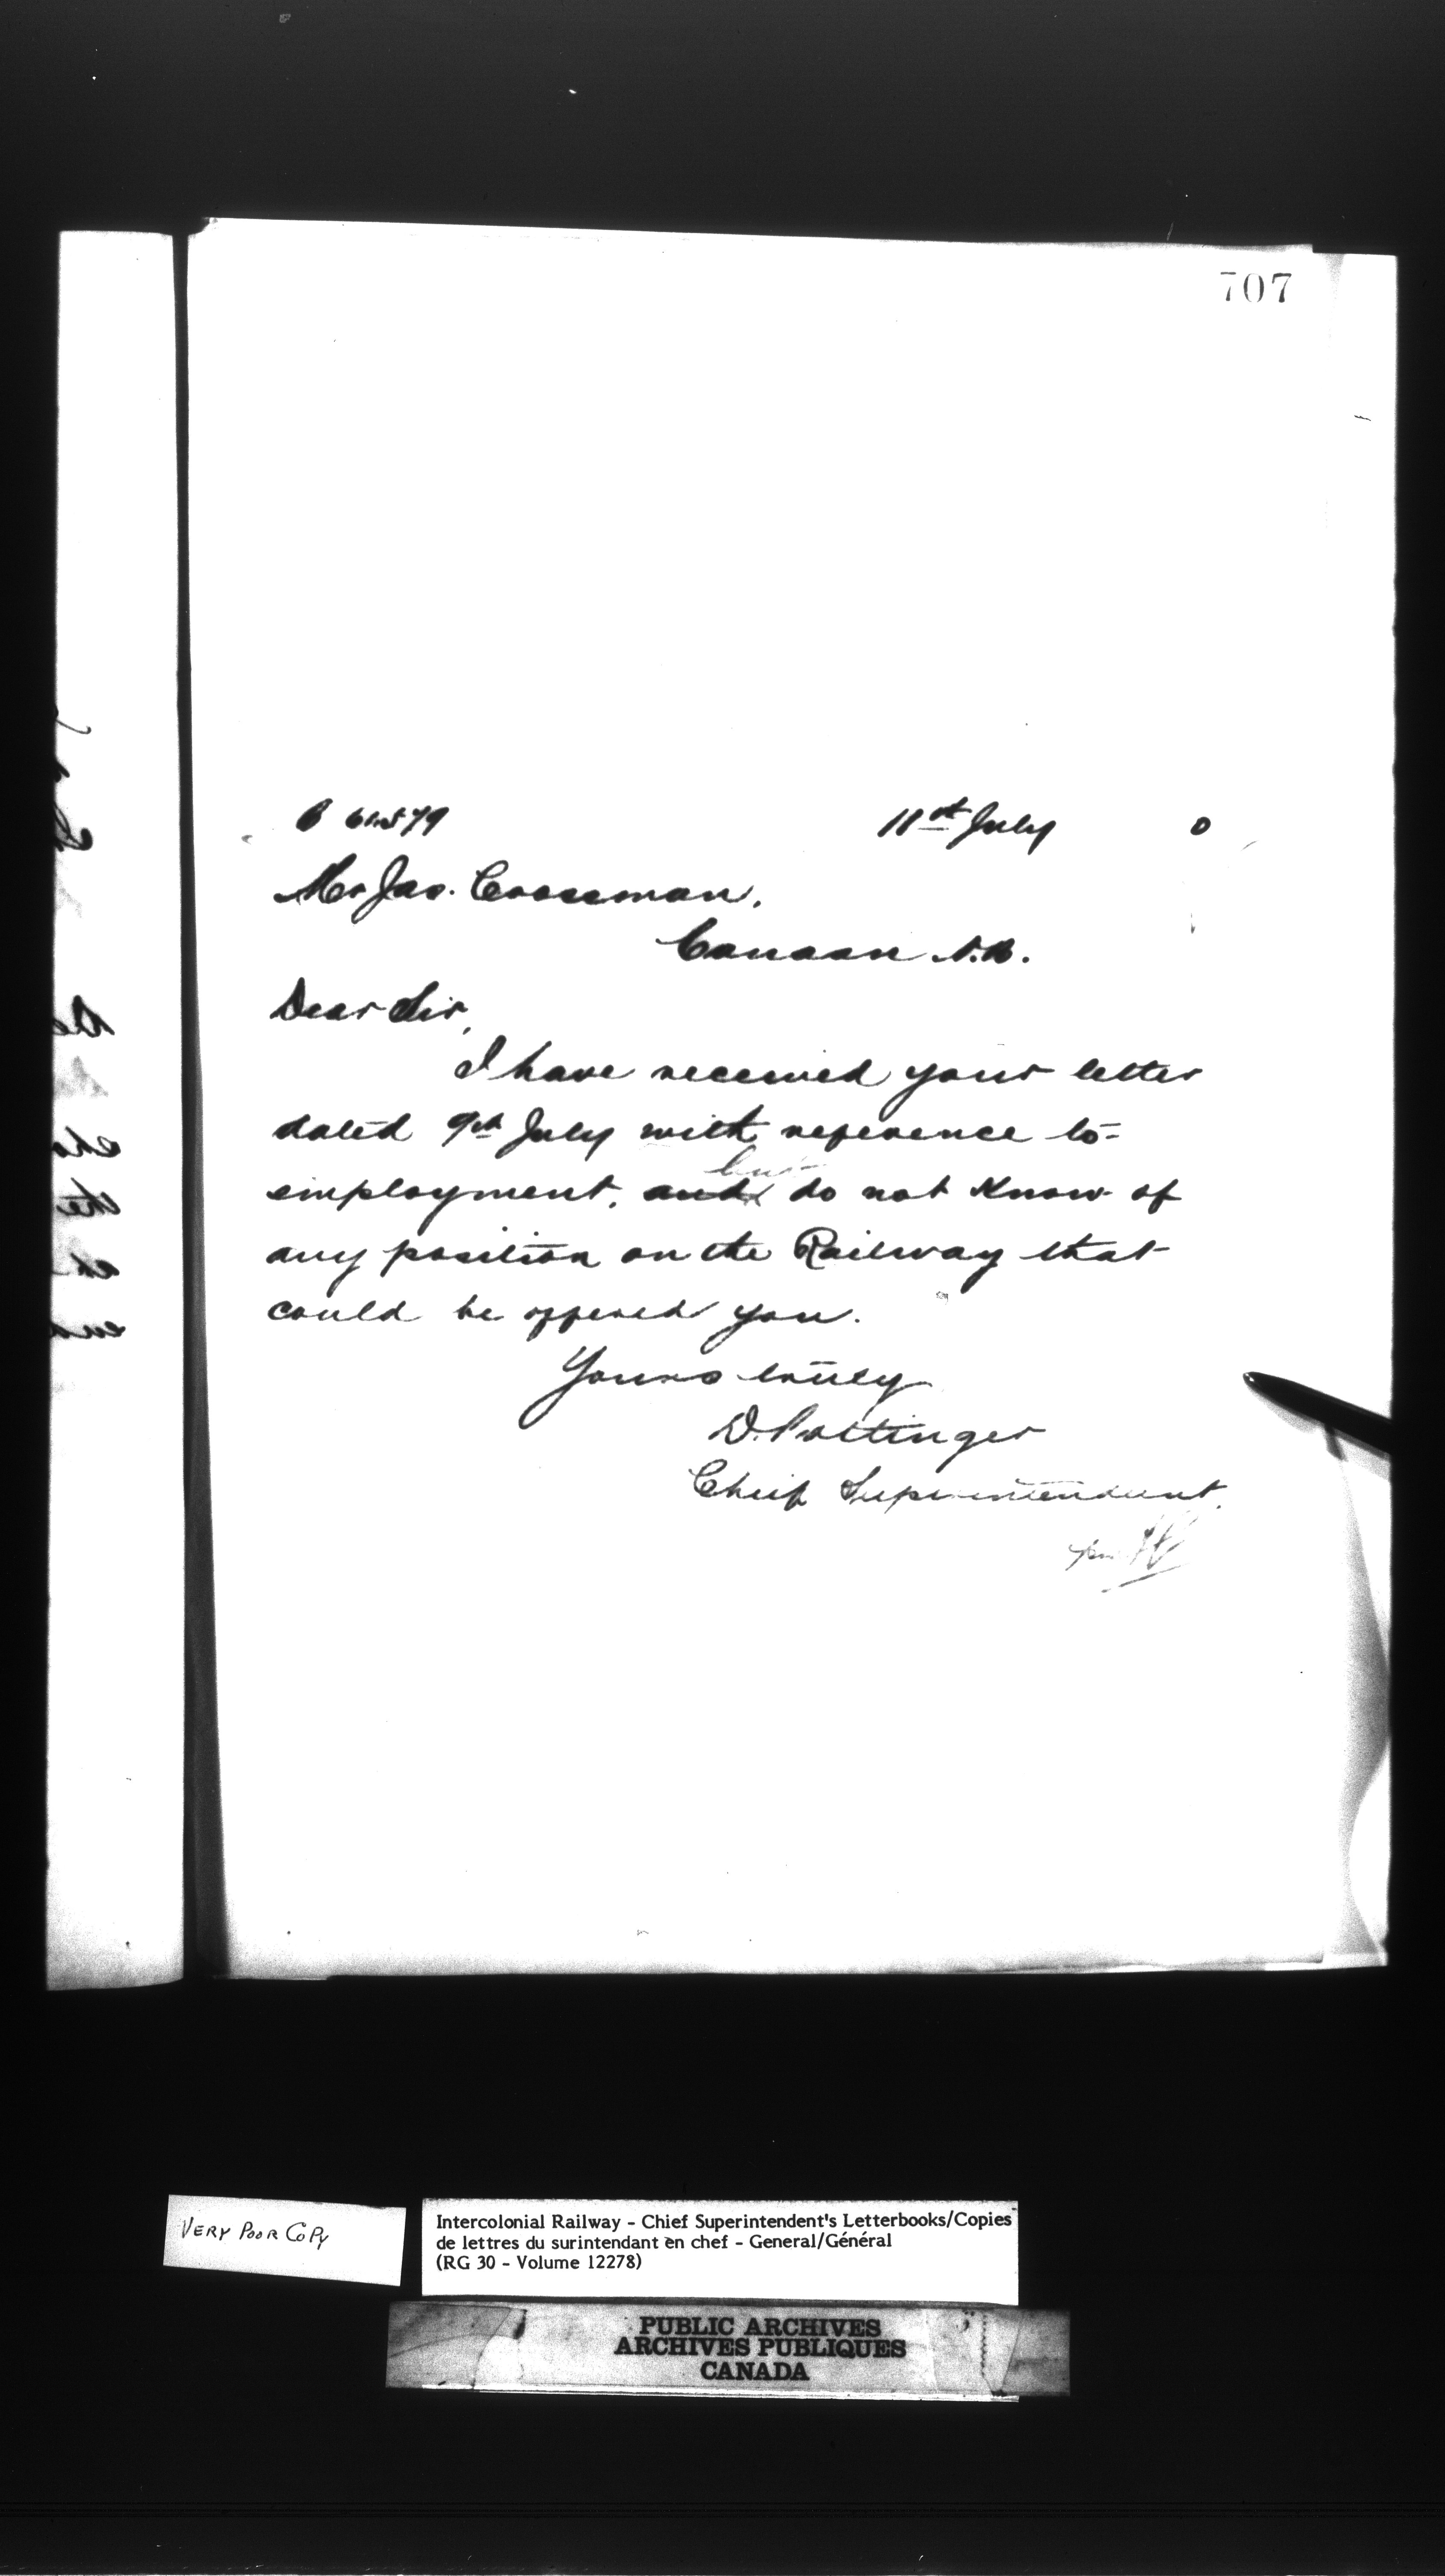 707
11st July 0
Mr Jas. Crossman,
Canaan N.B.
Dear Sir,
I have received your letter
dated 9th July with reference to
but
employment, and do not know of
any position on the Railway that
could be offered you.
Yours truly
D. Pottinger
Chief Superintendent.
VERY POOR COPY
Intercolonial Railway - Chief Superintendent's Letterbooks/Copies
de lettres du surintendant en chef - General/Général
(RG 30 - Volume 12278)
PUBLIC ARCHIVES
ARCHIVES PUBLIQUES
CANADA